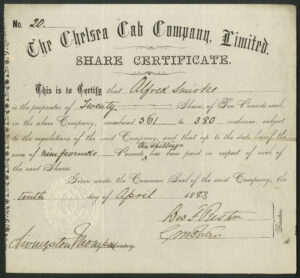 No. 20.
The Chelsea Cab Company, Limited.
SHARE CERTIFICATE.
This is to Certify that Alfred
is the proprietor of Twenty Shares, of Ten Pounds each
in the above Company, numbered 361 to 380 inclusive, subject
to the regulations of the said Company, and that up to the date hereof the
ten shillings
sum of nine pounds Pounds has been paid in respect of each of
the said Shares.
Given under the Common Seal of the said Company, the
tenth day of April 1883
Directors
Livingston Thompson Secretary.